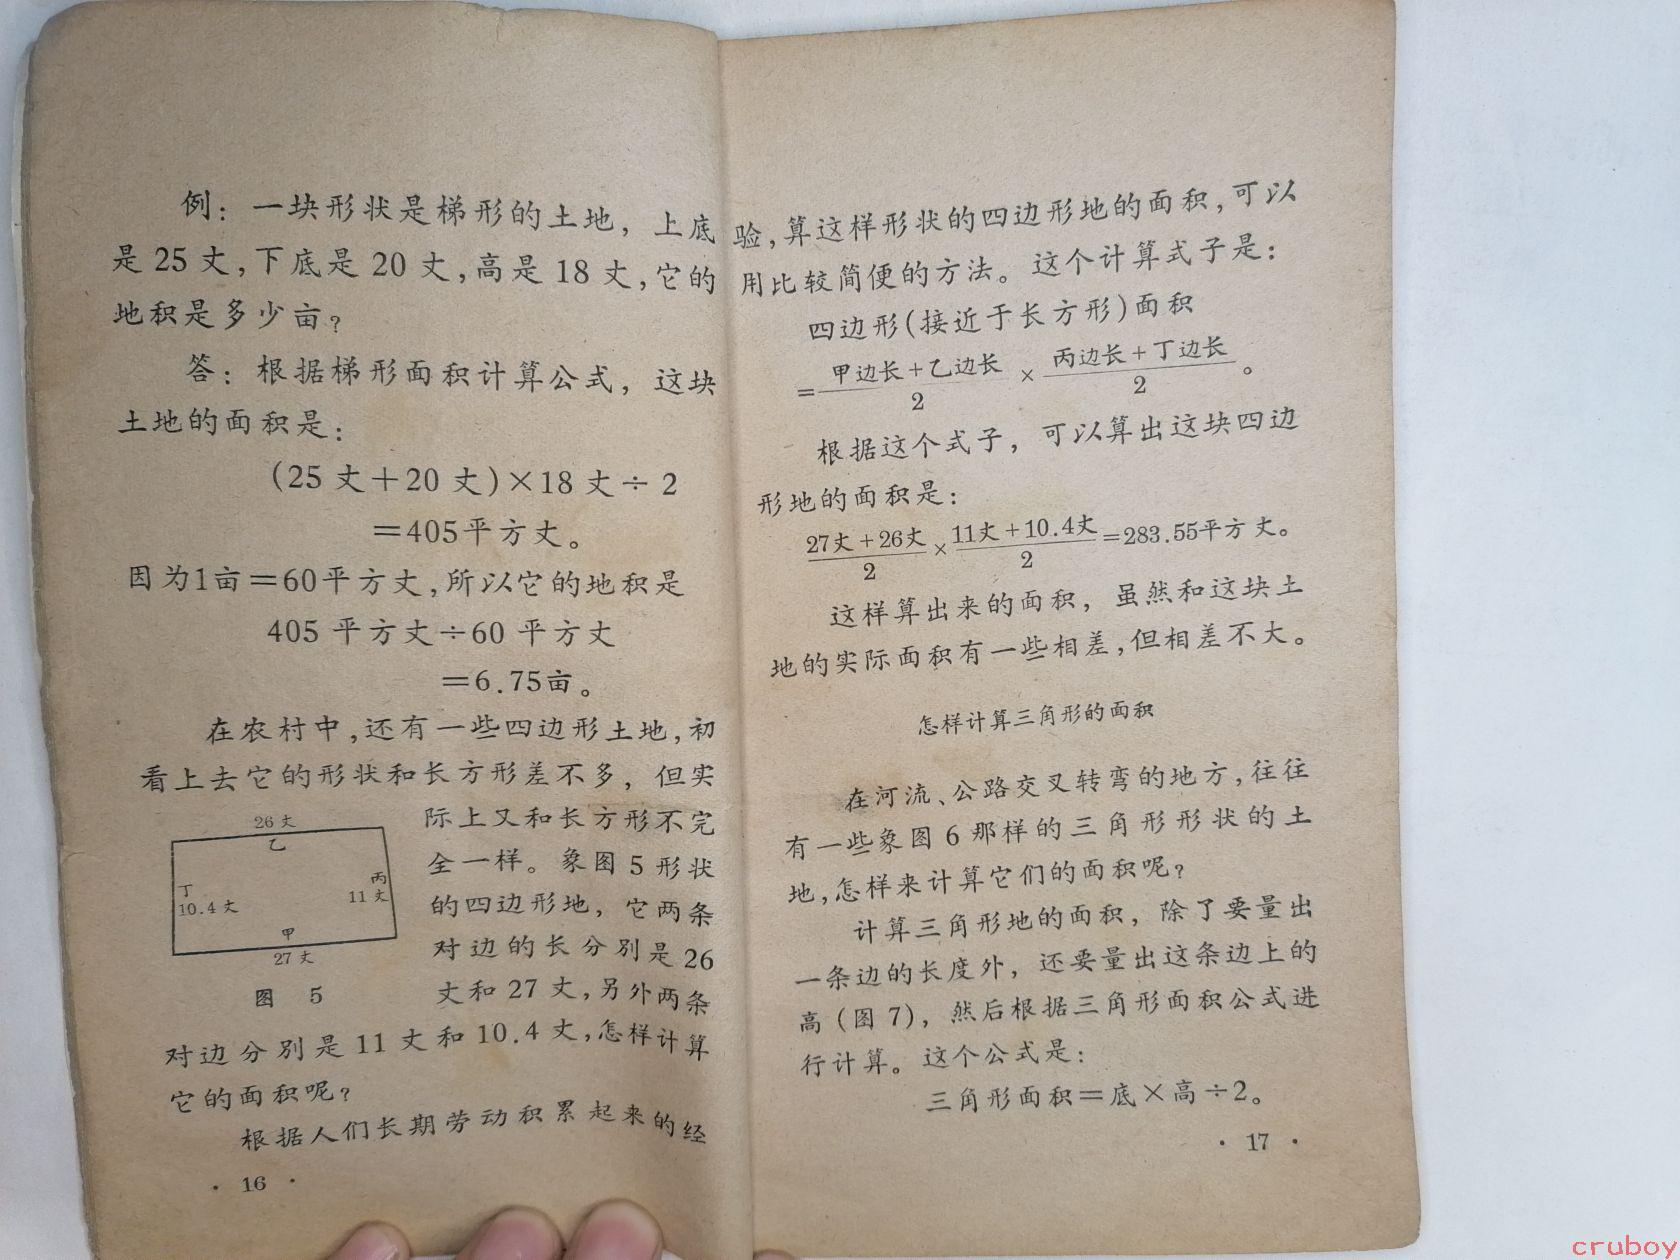 例：一块形状是梯形的土地，上底
是25丈，下底是20丈，高是18丈，它的
地积是多少亩？
答：根据梯形面积计算公式，这块
土地的面积是：
(25丈＋20丈)×18丈÷2
＝405平方丈。
因为1亩＝60平方丈，所以它的地积是
405平方丈÷60平方丈
＝6.75亩。
在农村中，还有一些四边形土地，初
看上去它的形状和长方形差不多，但实
际上又和长方形不完
全一样。象图5形状
的四边形地，它两条
对边的长分别是26
丈和27丈，另外两条
26丈
乙
丁
10.4丈
丙
11丈
甲
27丈
图 5
对边分别是11丈和10.4丈，怎样计算
它的面积呢？
根据人们长期劳动积累起来的经
· 16 ·
验，算这样形状的四边形地的面积，可以
用比较简便的方法。这个计算式子是：
四边形(接近于长方形)面积
＝甲边长＋乙边长/2 × 丙边长＋丁边长/2。
根据这个式子，可以算出这块四边
形地的面积是：
27丈＋26丈/2 × 11丈＋10.4丈/2＝283.55平方丈。
这样算出来的面积，虽然和这块土
地的实际面积有一些相差，但相差不大。
怎样计算三角形的面积
在河流、公路交叉转弯的地方，往往
有一些象图6那样的三角形形状的土
地，怎样来计算它们的面积呢？
计算三角形地的面积，除了要量出
一条边的长度外，还要量出这条边上的
高(图7)，然后根据三角形面积公式进
行计算。这个公式是：
三角形面积＝底×高÷2。
· 17 ·
cruboy